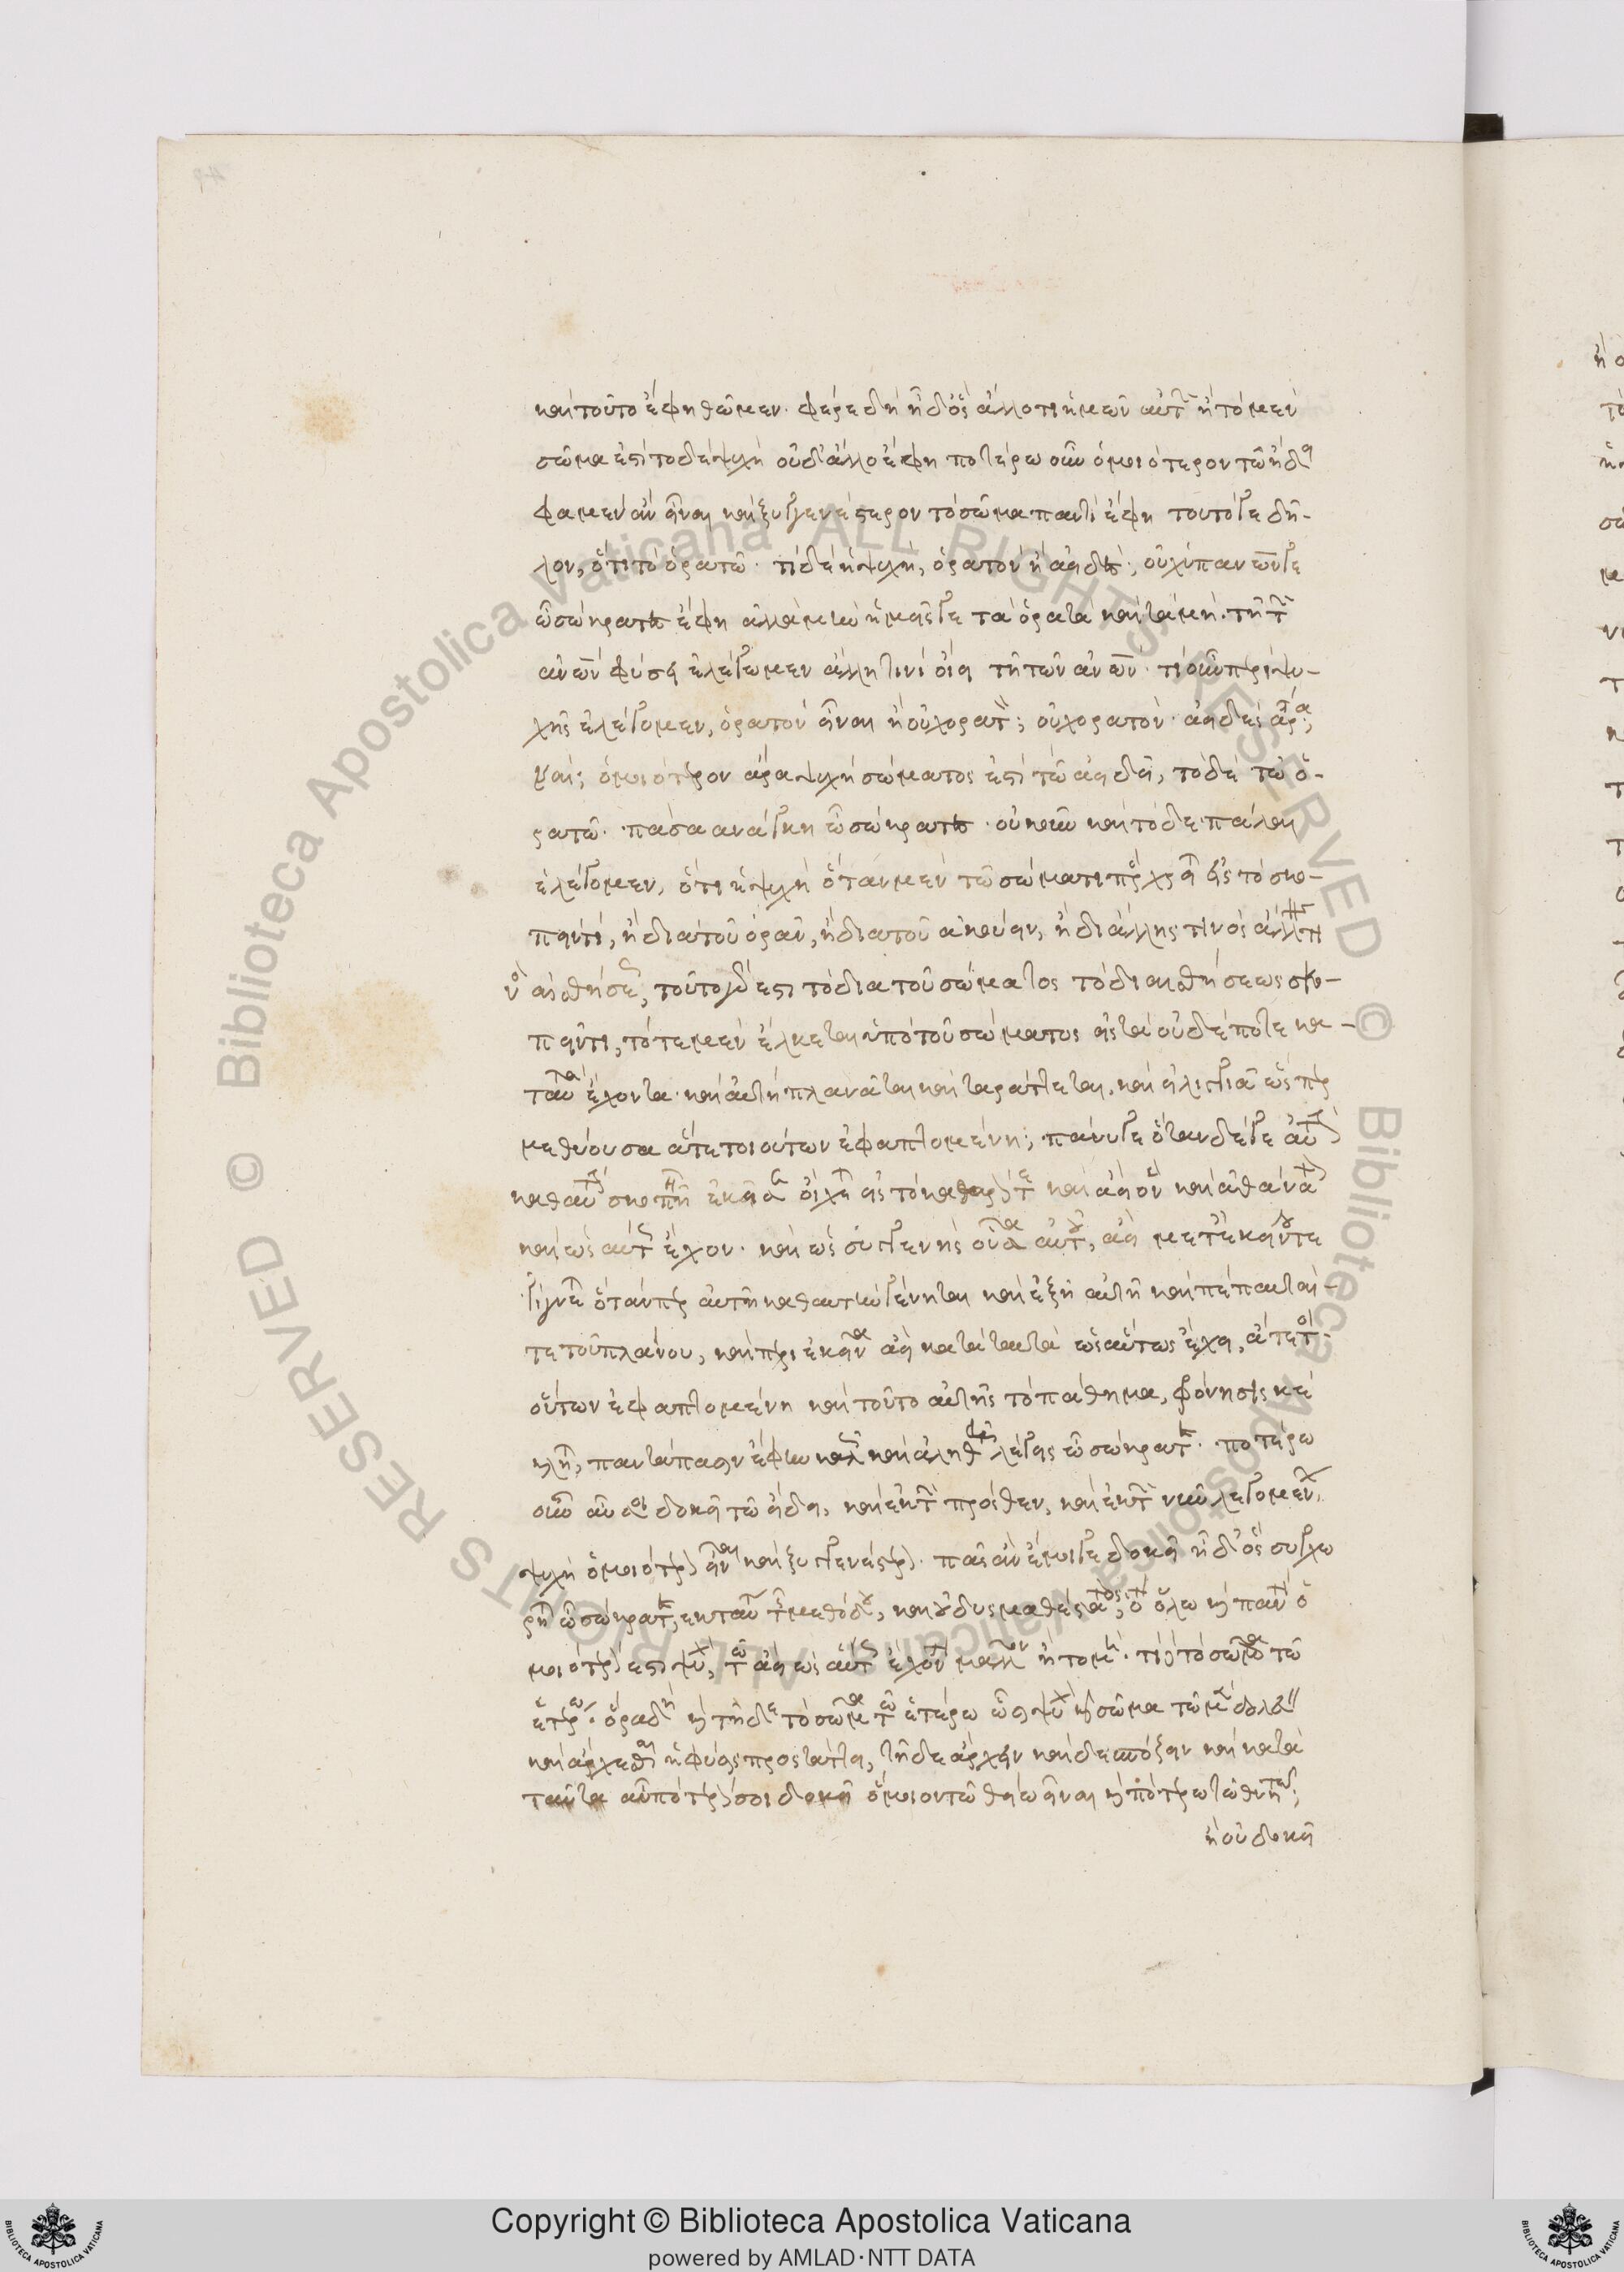 καὶ τοῦτο ἔφη θῶμεν· φέρε δὴ ἦ δ' ὅς ἄλλο τι ἡμῶν αὐτῶν ἢ τὸ μὲν
σῶμα ἐστὶ τὸ δὲ ψυχὴ οὐδ' ἄλλο ἔφη ποτέρω οὖν ὁμοιότερον τῶ εἴδει
φαμὲν ἂν εἶναι καὶ ξυγγενέστερον τὸ σῶμα παντὶ ἔφη τοῦτό γε δῆ-
λον, ὅτι τὸ ὁρατῶ· τί δὲ ἡ ψυχὴ, ὁρατὸν ἢ ἀειδές; οὐχ ὑπ' ἀνων γε
ὦ σώκρατες ἔφη ἀλλὰ μὴν ἡμεῖς γε τὰ ὁρατὰ καὶ τὰ μὴ· τῆ τῶν
ἀνων φύσει ἐλέγομεν ἄλλη τινὶ οἴει τῆ τῶν ἀνων· τί οὖν περὶ ψυ-
χῆς ἐλέγομεν, ὁρατὸν εἶναι ἢ οὐχ ὁρατόν; οὐχ ὁρατόν· ἀειδὲς ἄρα;
ναί; ὁμοιότερον ἄρα ψυχὴ σώματος ἐστὶ τῶ ἀειδεῖ, τὸ δὲ τῶ ὁ-
ρατῶ· πᾶσα ἀνάγκη ὦ σώκρατες· οὐκοῦν καὶ τόδε πάλαι
ἐλέγομεν, ὅτι ἡ ψυχὴ ὅταν μὲν τῶ σώματι προσχρῆται εἰς τὸ σκο-
πεῖν τι, ἢ διὰ τοῦ ὁρᾶν, ἢ διὰ τοῦ ἀκούειν, ἢ δι' ἄλλης τινὸς
αἰσθήσεως, τοῦτο γάρ ἐστι τὸ διὰ τοῦ σώματος τὸ δι' αἰσθήσεως σκο-
πεῖν τι, τότε μὲν ἕλκεται ὑπὸ τοῦ σώματος εἰς τὰ οὐδέποτε κα-
ταυτὰ ἔχοντα· καὶ αὐτὴ πλανᾶται καὶ ταράττεται, καὶ εἰλιγγιᾶ ὥσπερ
μεθύουσα ἅτε τοιούτων ἐφαπτομένη; πάνυ γε ὅταν δέ γε αὐτὴ
καθ' αὑτὴν σκοπῆ ἐκεῖσε οἴχεται εἰς τὸ καθαρόν τε καὶ ἀεὶ ὂν καὶ ἀθάνατον
καὶ ὡσαύτως ἔχον· καὶ ὡς συγγενὴς οὖσα αὐτοῦ, ἀεὶ μετ' ἐκείνου τε
γίγνεται ὅτανπερ αὐτὴ καθ' αὑτὴν γένηται καὶ ἐξῆ αὐτῆ καὶ πέπαυταί
τε τοῦ πλάνου, καὶ περὶ ἐκεῖνα ἀεὶ κατὰ ταυτὰ ὡσαύτως ἔχει, ἅτε τοι-
ούτων ἐφαπτομένη καὶ τοῦτο αὐτῆς τὸ πάθημα, φρόνησις κέ
κληται, παντάπασιν ἔφη καλῶς καὶ ἀληθῆ λέγεις ὦ σώκρατες· ποτέρω
οὖν αὖ σοι δοκεῖ τῶ εἴδει, καὶ ἐκ τῶν πρόσθεν, καὶ ἐκ τῶν νῦν λεγομένων
ψυχὴ ὁμοιότερον εἶναι καὶ ξυγγενέστερον· πᾶς ἂν ἔμοιγε δοκεῖ ἦ δ' ὃς συγχω
ρῆσαι ὦ σώκρατες, ἐκ ταύτης τῆς μεθόδου, καὶ ὁ δυσμαθέστατος, ὅτι ὅλω καὶ παντὶ ὁ
μοιότερόν ἐστι ψυχὴ, τῶ ἀεὶ ὡσαύτως ἔχοντι μᾶλλον ἢ τῶ μή· τί δὲ τὸ σῶμα τῶ
ἑτέρω· ὅρα δὴ καὶ τῆδε
καὶ ἄρχεσθαι ἡ φύσις προστάττει, τῆ δὲ ἄρχειν καὶ δεσπόζειν καὶ κατὰ
ταῦτα αὖ πότερόν σοι δοκεῖ ὅμοιον τῶ θείω εἶναι καὶ πότερον τῶ θνητῶ;
ἢ οὐ δοκεῖ
© Biblioteca Apostolica Vaticana ALL RIGHTS RESERVED © Biblioteca Apostolica Vaticana ALL RIGHTS RESERVED
Copyright © Biblioteca Apostolica Vaticana
powered by AMLAD·NTT DATA
BIBLIOTECA APOSTOLICA VATICANA
BIBLIOTECA APOSTOLICA VATICANA